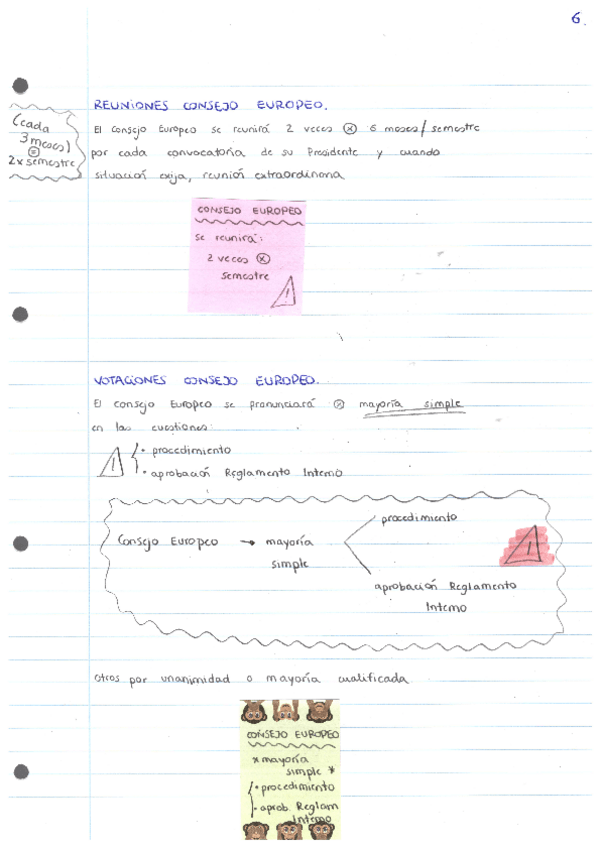 6
REUNIONES CONSEJO EUROPEO.
El Consejo Europeo se reunirá 2 veces ⓧ 6 meses/semestre
por cada convocatoria de su Presidente y cuando
situación exija, reunión extraordinaria
(cada
3 meses)
=
2x semestre
CONSEJO EUROPEO
se reunirá:
2 veces ⓧ
semestre
!
VOTACIONES CONSEJO EUROPEO.
El consejo Europeo se pronunciará ⓧ mayoría simple
en las cuestiones:
! • procedimiento
• aprobación Reglamento Interno
Consejo Europeo → mayoría
simple
procedimiento
!
aprobación Reglamento
Interno
otros por unanimidad o mayoría cualificada
CONSEJO EUROPEO
x mayoría
simple *
• procedimiento
• aprob. Reglam
Interno